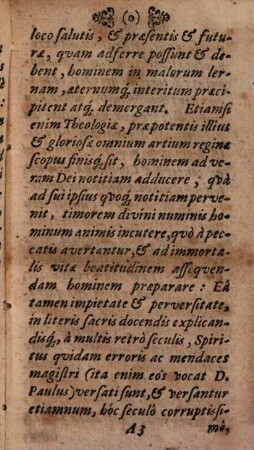 (o)
loco salutis, & præsentis & futu-
ræ, quam adferre possunt & de-
bent, hominem in malorum ler-
nam, æternumq́, interitum præci-
pitent atq́, demergant. Etiamsi
enim Theologiæ, præpotentis illius
& gloriosæ omnium artium reginæ
scopus finisq́, sit, hominem ad ve-
ram Dei notitiam adducere, quâ
ad sui ipsius quoq́, notitiam perve-
nit, timorem divini numinis ho-
minum animis incutere, quò à pec-
catis avertantur, & ad immorta-
lis vitæ beatitudinem asseqven-
dam hominem præparare: Eâ
tamen impietate & perversitate,
in literis sacris docendis explican-
disq́, à multis retrò seculis, Spiri-
tus quidam erroris ac mendaces
magistri (ita enim eos vocat D.
Paulus) versati sunt, & versantur
etiamnum, hôc seculô corruptissi-
A3 mô,